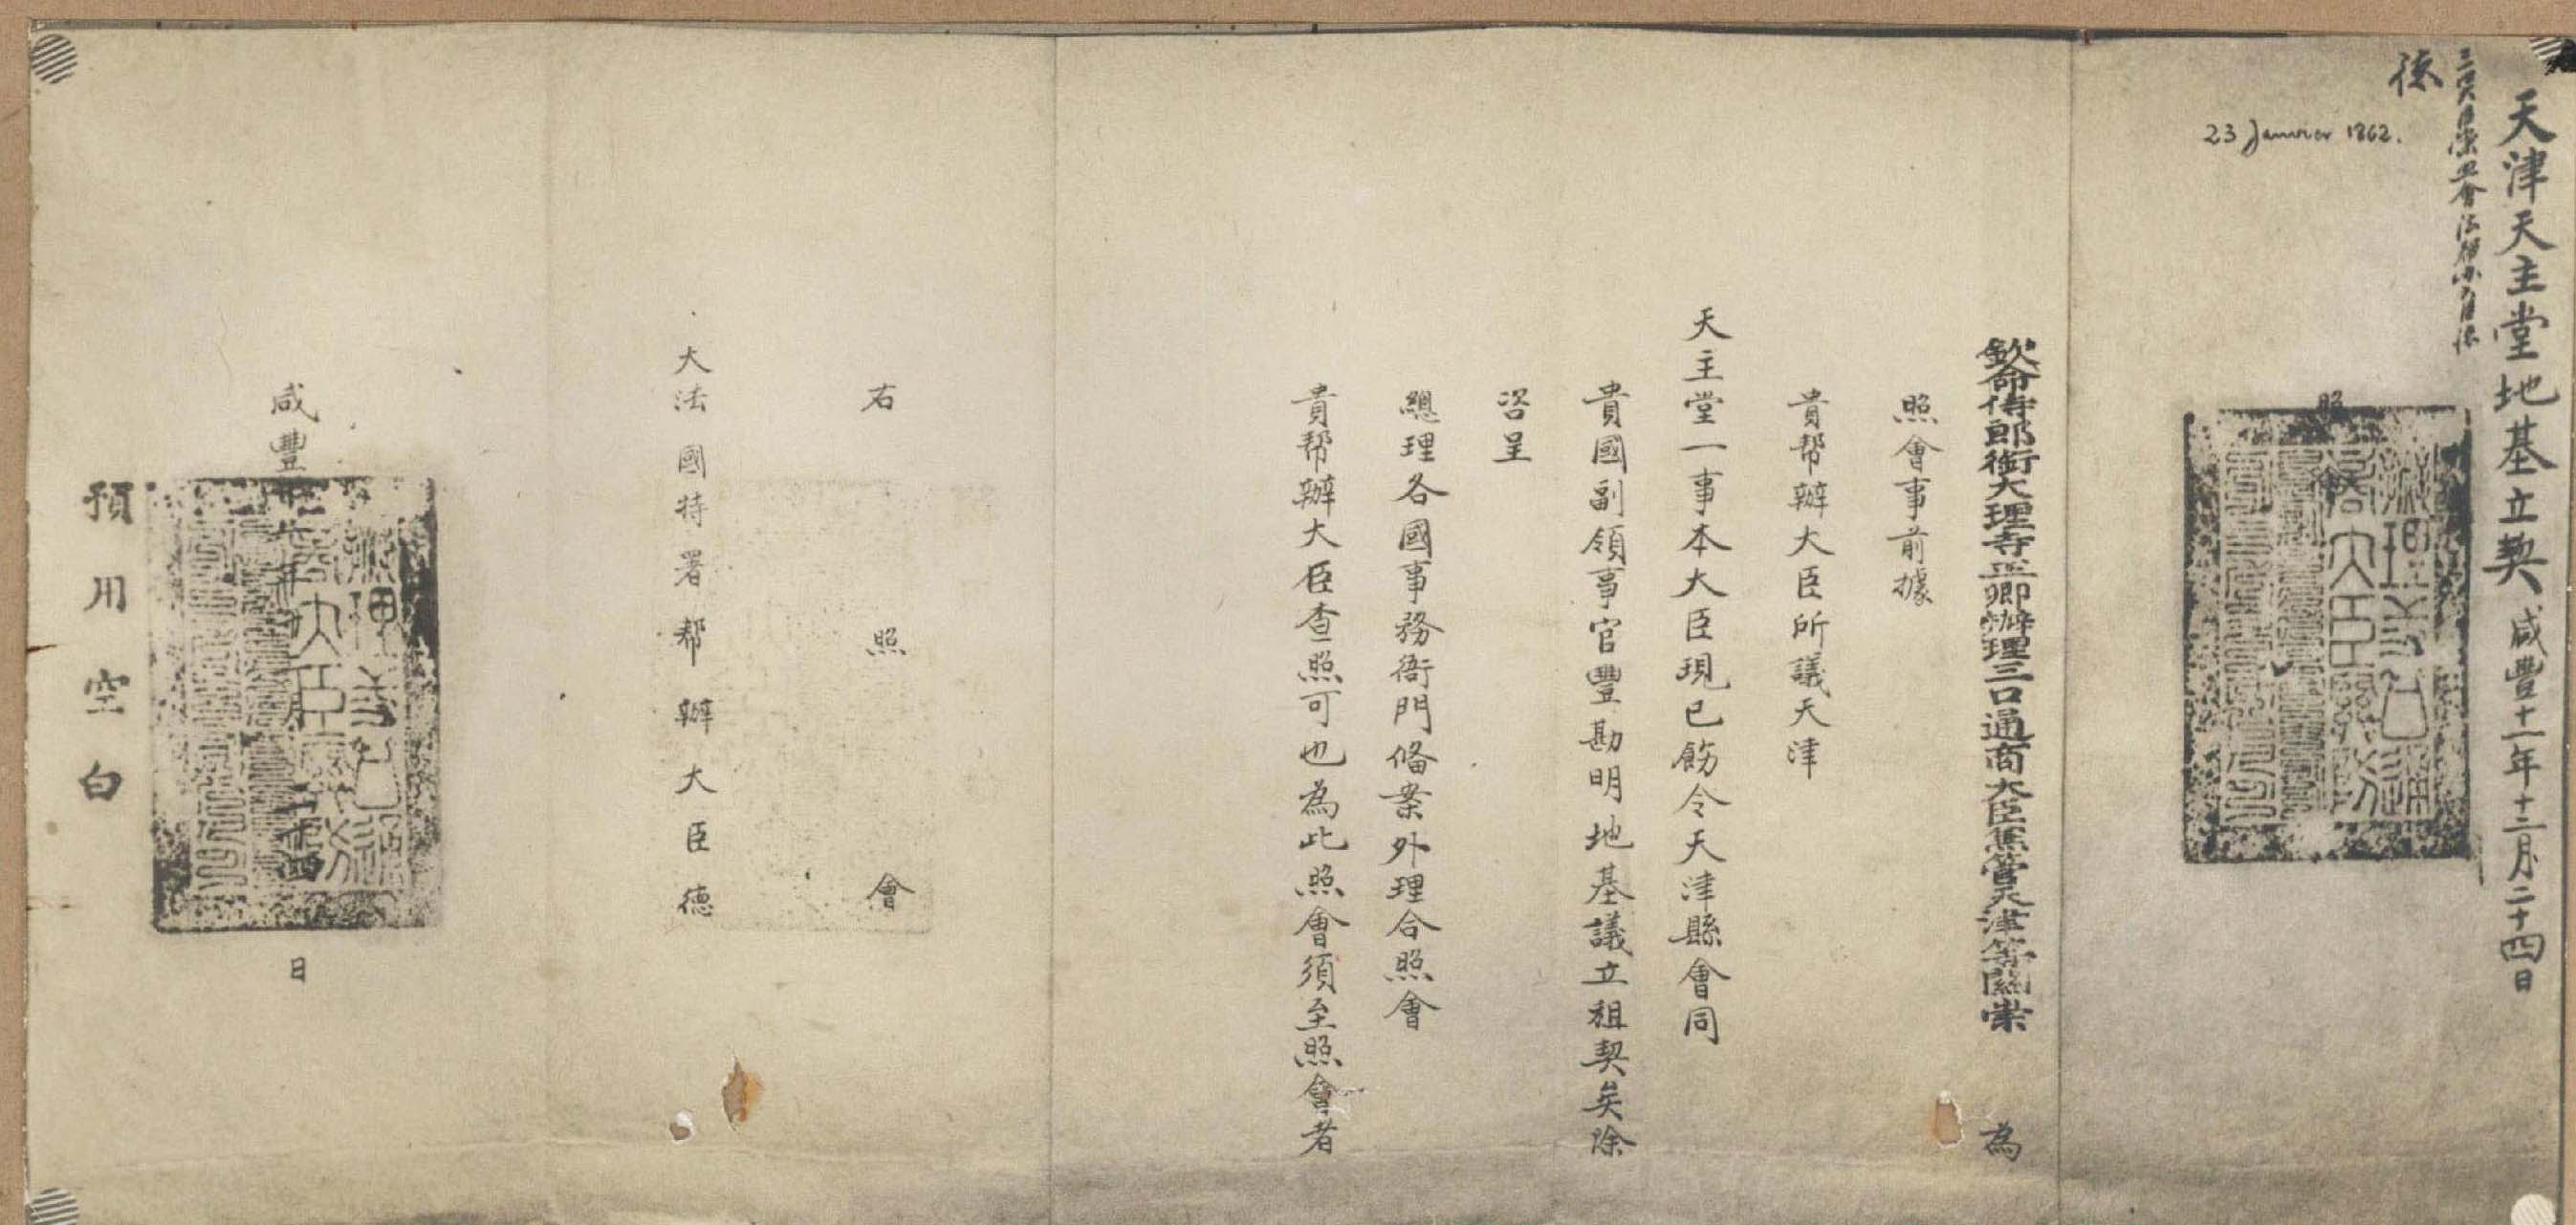 天津天主堂地基立契 咸豐十一年十二月二十四日
德
23 Janvier 1862.
照
欽命侍郎銜大理寺正卿辦理三口通商大臣兼管天津等關崇 為
照會事前據
貴帮辦大臣所議天津
天主堂一事本大臣現已飭令天津縣會同
貴國副領事官豐勘明地基議立租契矣除
咨呈
總理各國事務衙門俻案外理合照會
貴帮辦大臣查照可也為此照會須至照會者
右照會
大法國特署帮辦大臣德
咸豐十一年十二月二十四日
預用空白